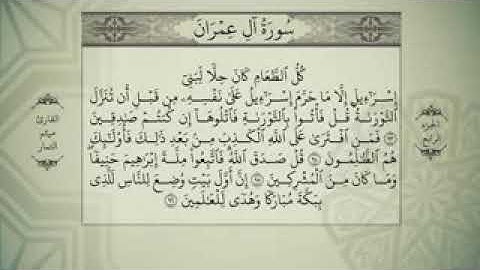 سُورَةُ آلِ عِمْرَانَ
كُلُّ الطَّعَامِ كَانَ حِلًّا لِبَنِي
إِسْرَائِيلَ إِلَّا مَا حَرَّمَ إِسْرَائِيلُ عَلَى نَفْسِهِ مِنْ قَبْلِ أَنْ تُنَزَّلَ
التَّوْرَاةُ قُلْ فَأْتُوا بِالتَّوْرَاةِ فَاتْلُوهَا إِنْ كُنْتُمْ صَادِقِينَ
۝٩٣ فَمَنِ افْتَرَى عَلَى اللَّهِ الْكَذِبَ مِنْ بَعْدِ ذَلِكَ فَأُولَئِكَ
هُمُ الظَّالِمُونَ ۝٩٤ قُلْ صَدَقَ اللَّهُ فَاتَّبِعُوا مِلَّةَ إِبْرَاهِيمَ حَنِيفًا
وَمَا كَانَ مِنَ الْمُشْرِكِينَ ۝٩٥ إِنَّ أَوَّلَ بَيْتٍ وُضِعَ لِلنَّاسِ لَلَّذِي
بِبَكَّةَ مُبَارَكًا وَهُدًى لِلْعَالَمِينَ ۝٩٦
الجزء
الرابع
القارئ
هيثم